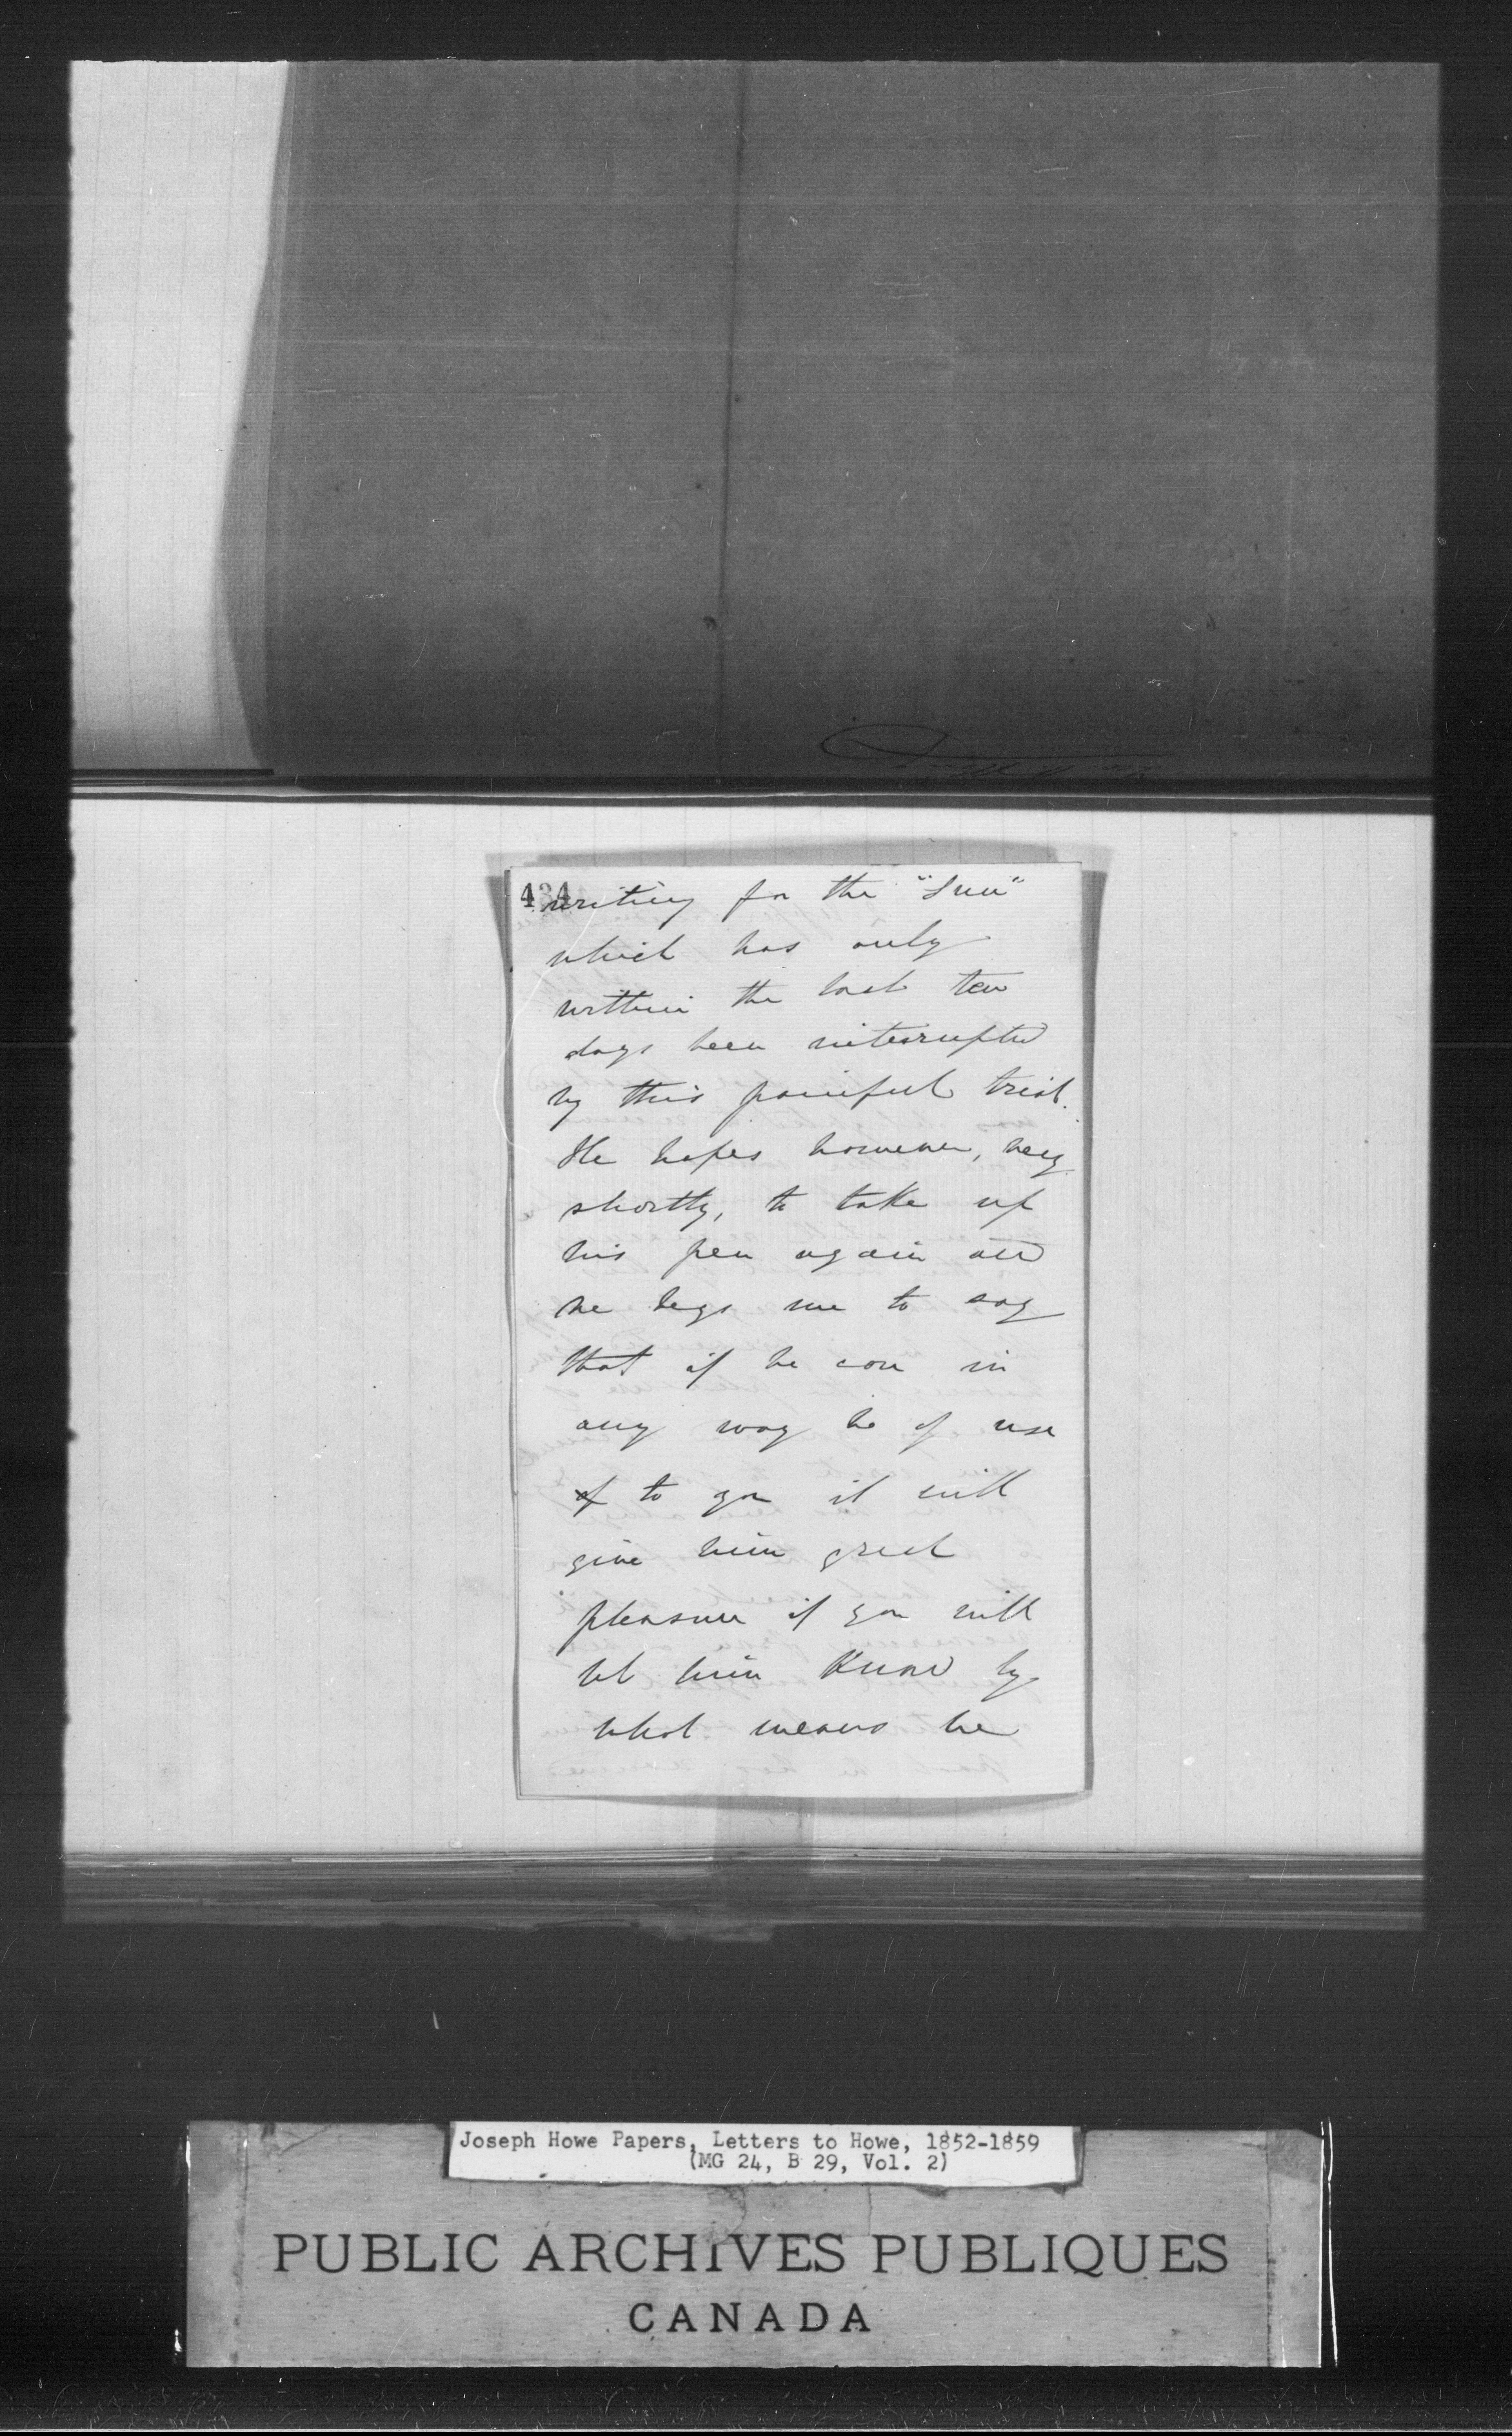 434
writing for the "Sun"
which has only
within the last ten
days been interrupted
by this painful trial.
He hopes however, very
shortly, to take up
his pen again and
he begs me to say
that if he can in
any way be of use
of to you it will
give him great
pleasure if you will
let him know by
what means he
Joseph Howe Papers, Letters to Howe, 1852-1859
(MG 24, B 29, Vol. 2)
PUBLIC ARCHIVES PUBLIQUES
CANADA